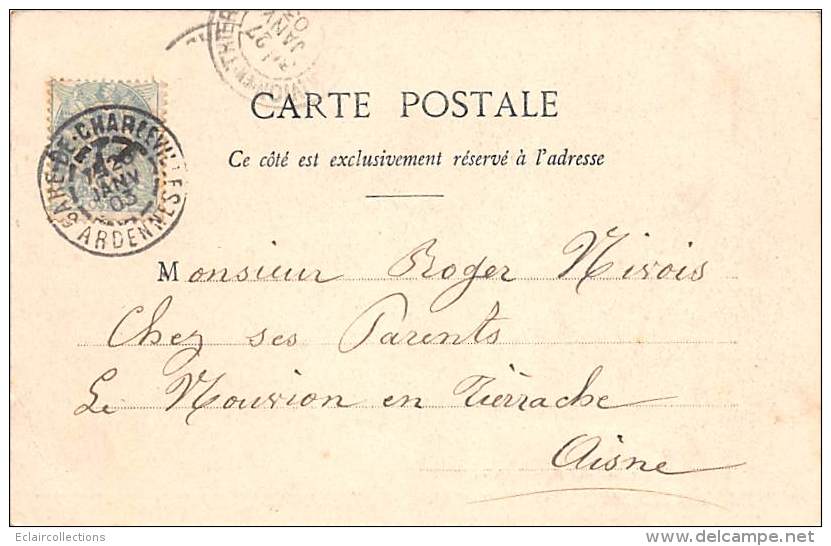 CARTE POSTALE
Ce côté est exclusivement réservé à l'adresse
GARE-DE-CHARLEVILLE
JANV
03
ARDENNES
27
JANV
03
Monsieur Roger Nivois
Chez ses Parents
Le Nouvion en Tiérrache
Aisne
Eclaircollections
www.delcampe.net